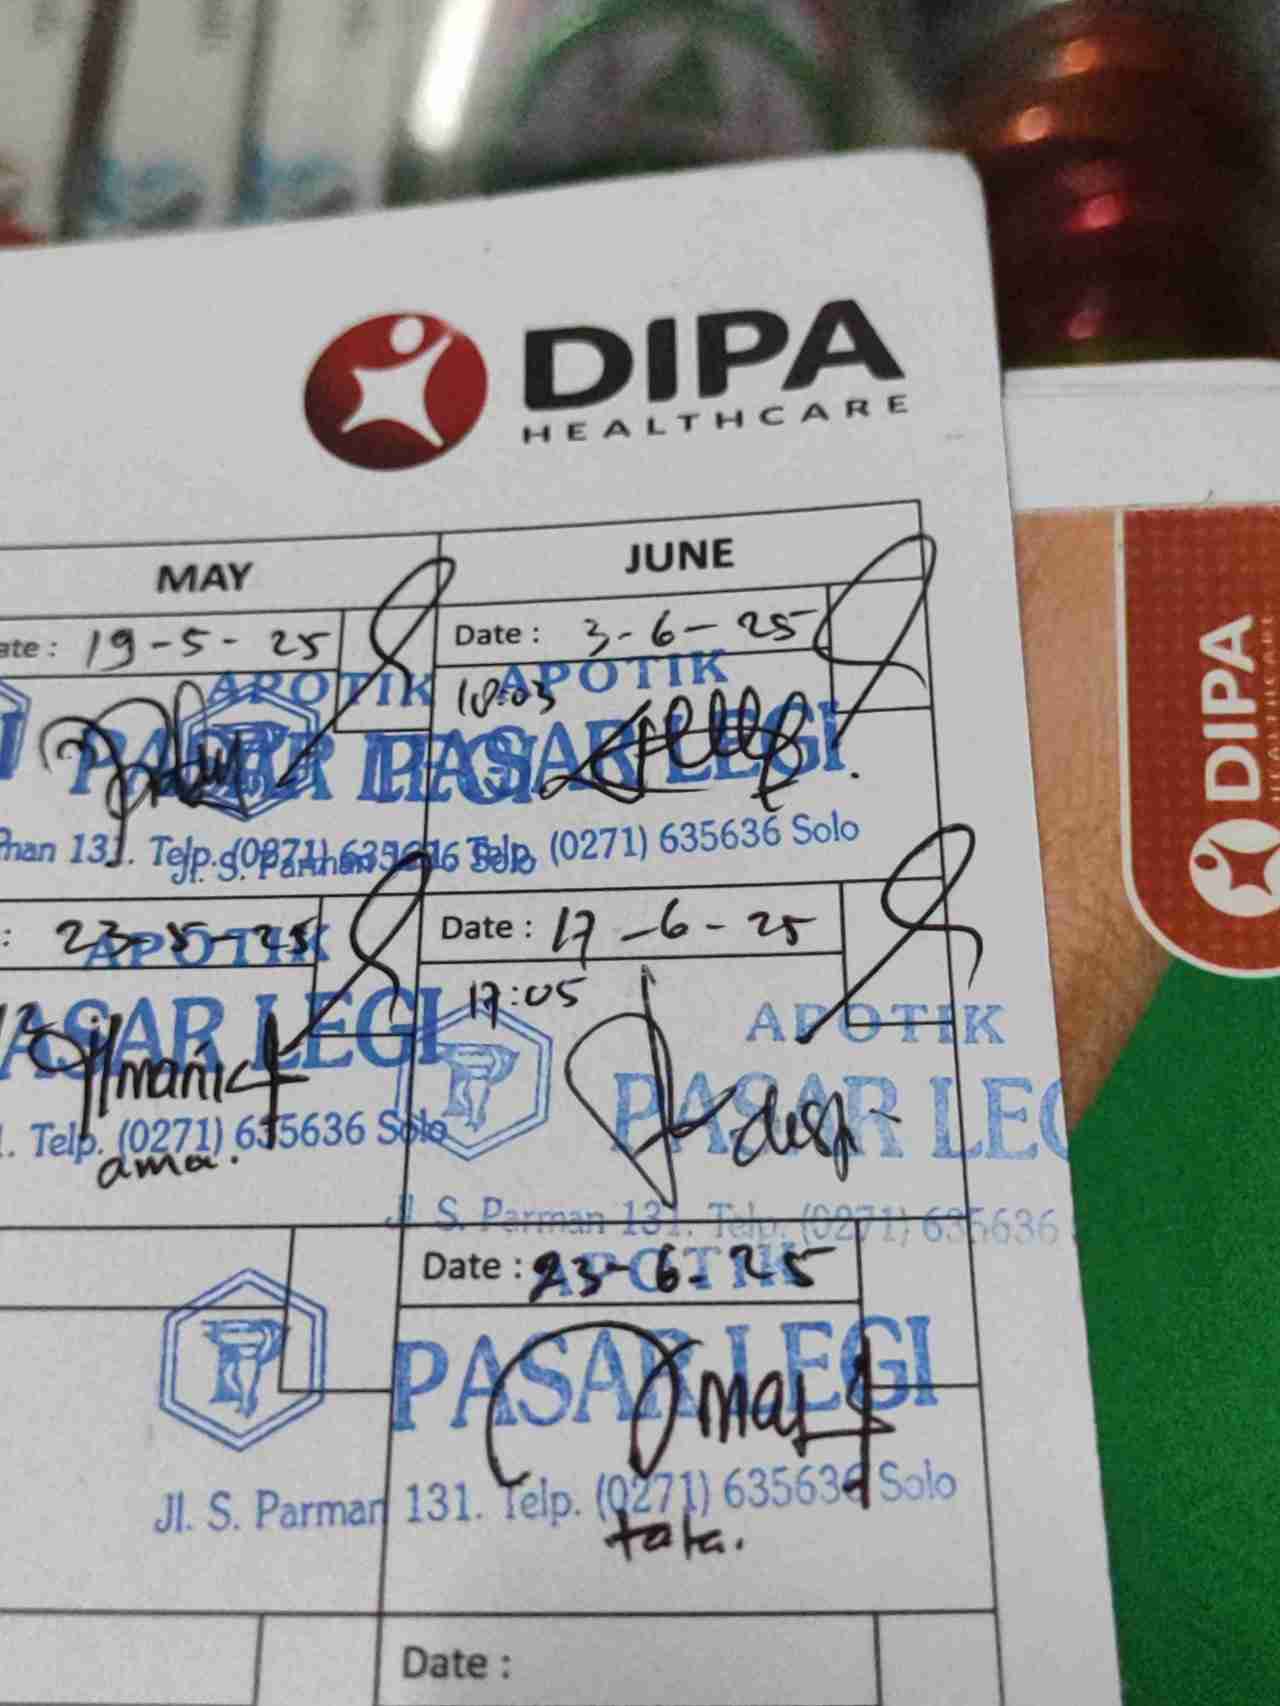 DIPA
HEALTHCARE
MAY
JUNE
ate : 19-5-25
Date : 3-6-25
APOTIK
APOTIK
PASAR LEGI
PASAR LEGI
man 131. Telp. (0271) 635636 Solo
Jl. S. Parman 131. Telp. (0271) 635636 Solo
: 23-5-25
Date : 17-6-25
APOTIK
17:05
ASAR LEGI
APOTIK
PASAR LEG
. Telp. (0271) 635636 Solo
ama.
desy
Jl. S. Parman 131. Telp. (0271) 635636
Date : 23-6-25
APOTIK
PASAR LEGI
Jl. S. Parman 131. Telp. (0271) 635636 Solo
tata.
Date :
DIPA